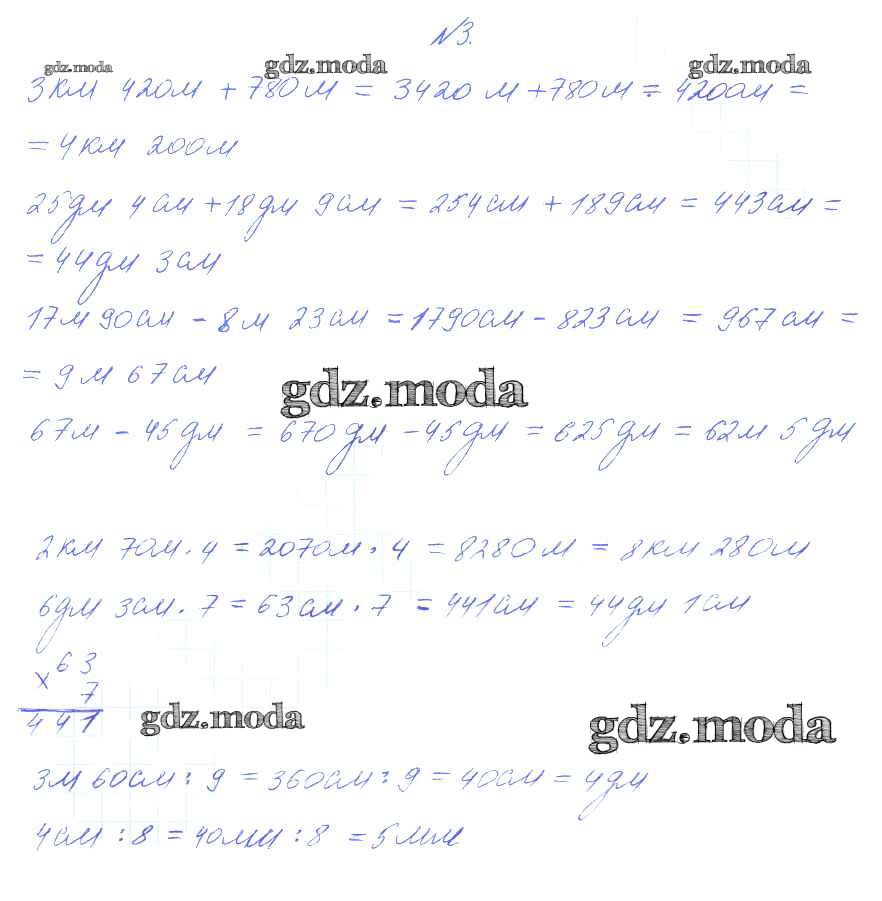 №3.
gdz.moda gdz.moda gdz.moda
3км 420м + 780м = 3420 м + 780м = 4200м =
= 4км 200м
25дм 4см + 18дм 9см = 254см + 189см = 443см =
= 44дм 3см
17м 90см - 8м 23см = 1790см - 823см = 967см =
= 9м 67см
gdz.moda
67м - 45дм = 670дм - 45дм = 625дм = 62м 5дм
2км 70м · 4 = 2070м · 4 = 8280м = 8км 280м
6дм 3см · 7 = 63см · 7 = 441см = 44дм 1см
x 63
7
441
gdz.moda gdz.moda
3м 60см : 9 = 360см : 9 = 40см = 4дм
4см : 8 = 40мм : 8 = 5мм